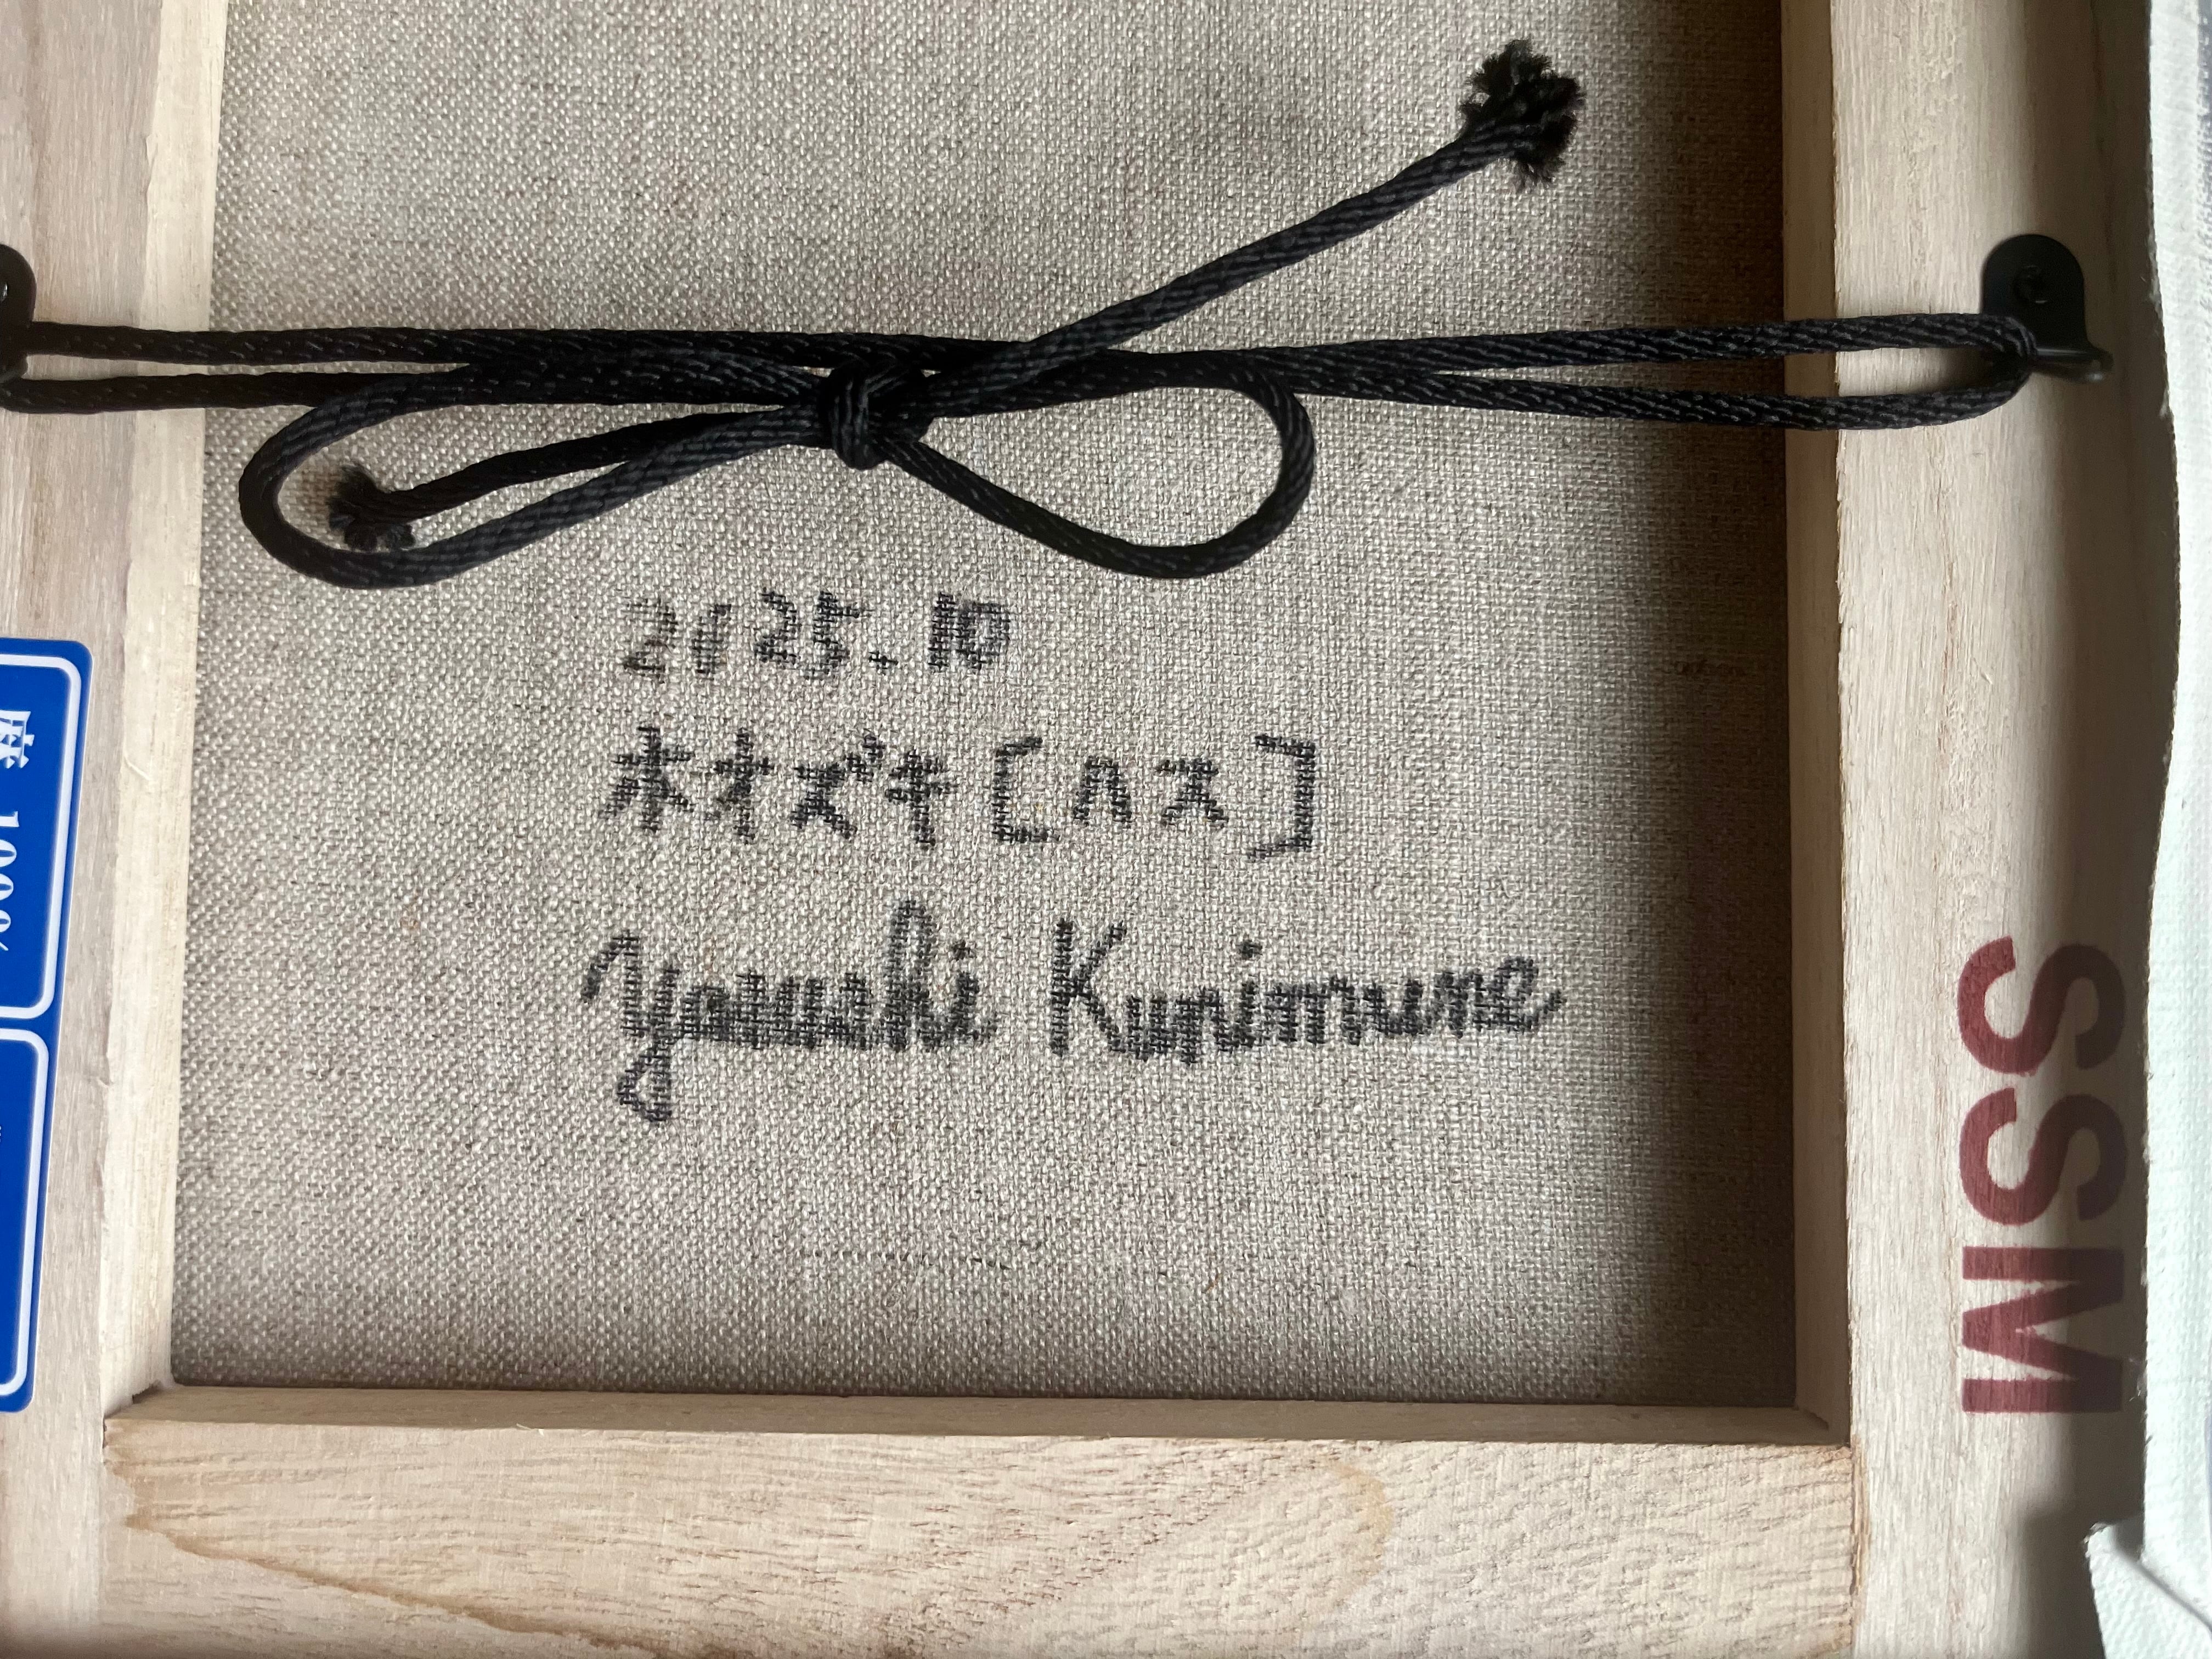 2025.10
ホオズキ[ハス]
Yasushi Kunimune
麻 100%
SSM